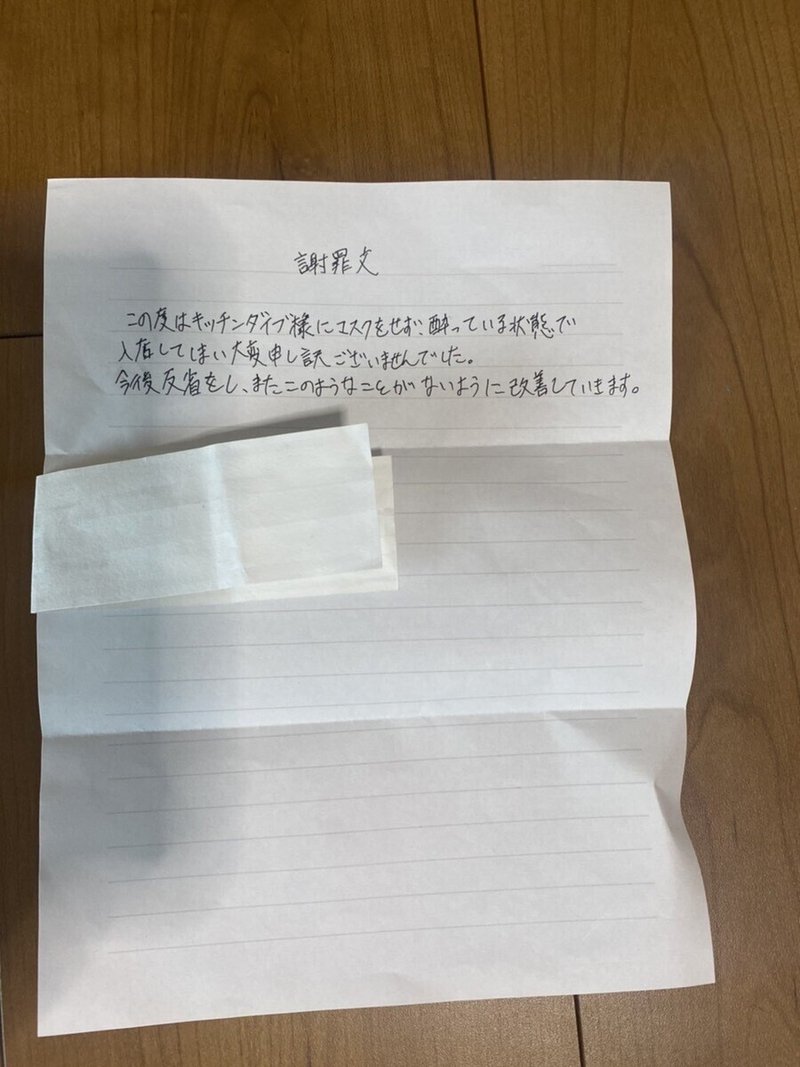 謝罪文
この度はキッチンダイブ様にマスクをせず、酔っている状態で
入店してしまい大変申し訳ございませんでした。
今後反省をし、またこのようなことがないように改善していきます。